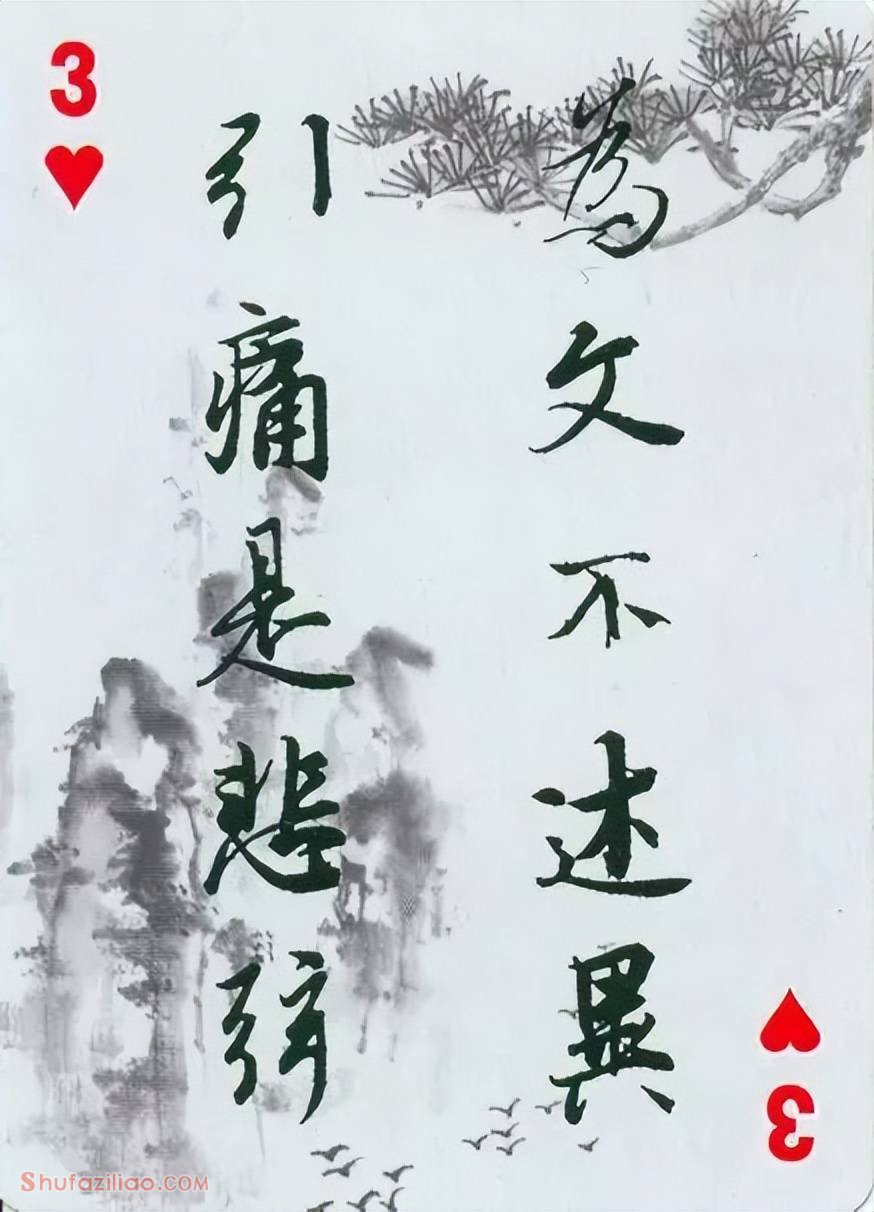 3
為文不述異
引痛是悲弦
3
Shufaziliao.com